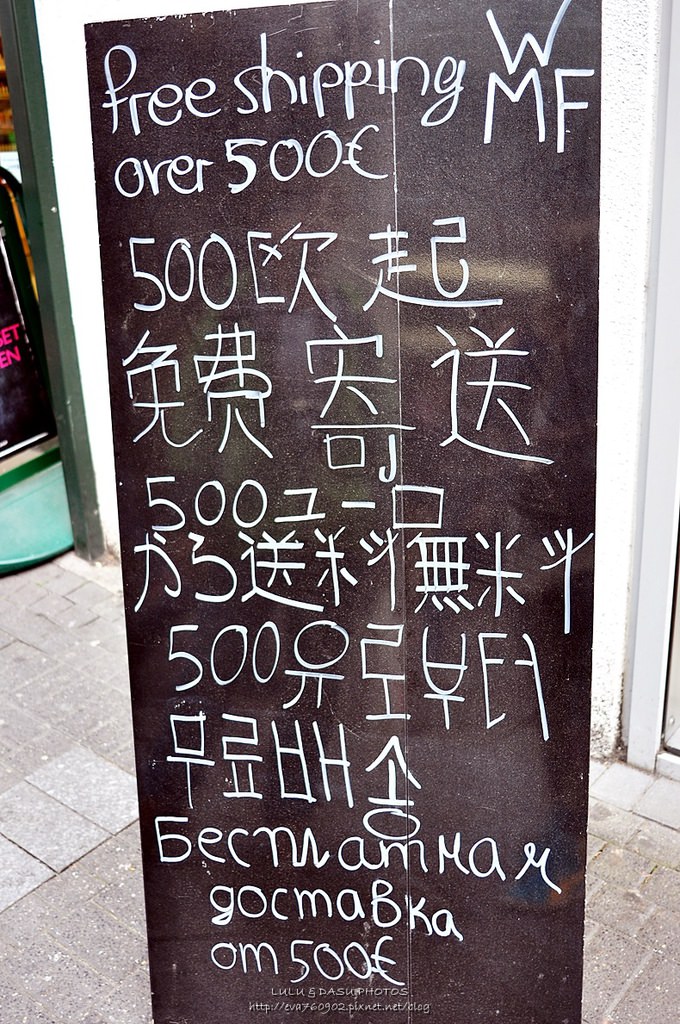 free shipping
WMF
over 500€
500欧起
免费寄送
500ユーロ
から送料無料
500유로부터
무료배송
Бесплатная
доставка
от 500€
LULU & DASU PHOTOS
http://eva760902.pixnet.net/blog